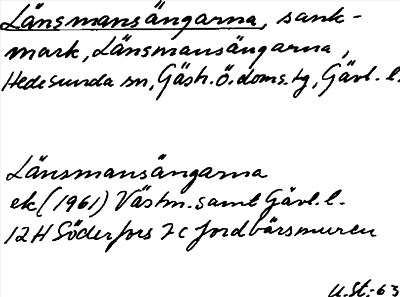 Länsmansängarna, sank-
mark, Länsmansängarna,
Hedesunda sn, Gästr. ö. doms. tg, Gävl. l.
Länsmansängarna
ek (1961) Västm. samt Gävl. l.
12H Söderfors 7c Jordbärsmuren
U.St.-63